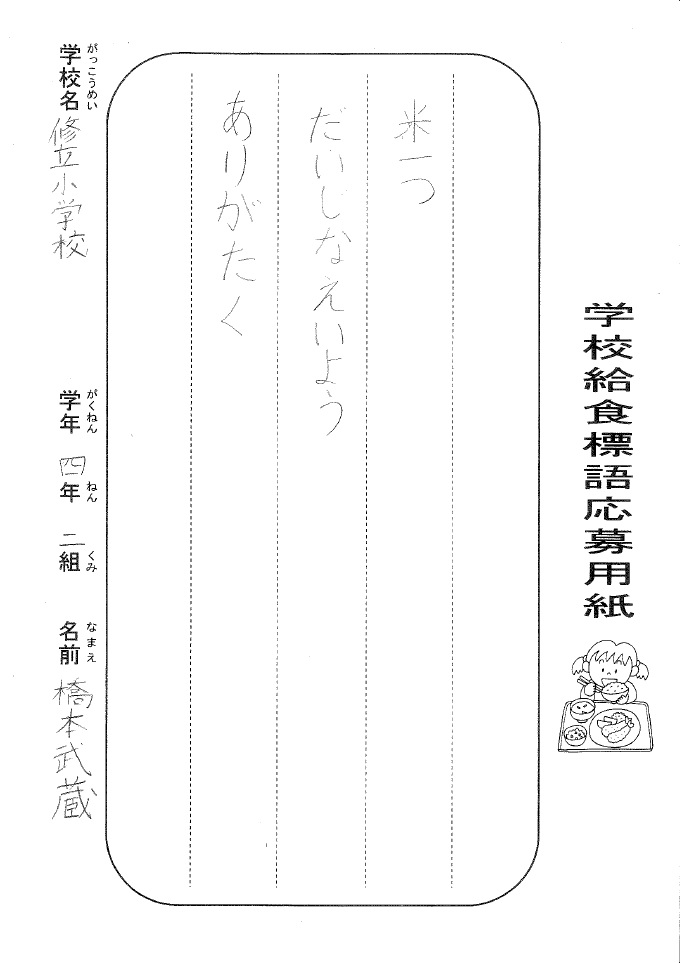 学校給食標語応募用紙
米一つ
だいじなえいよう
ありがたく
がっこうめい
学校名 修立小学校
がくねん
学年 四年 ねん 二組 くみ
なまえ
名前 橋本武蔵